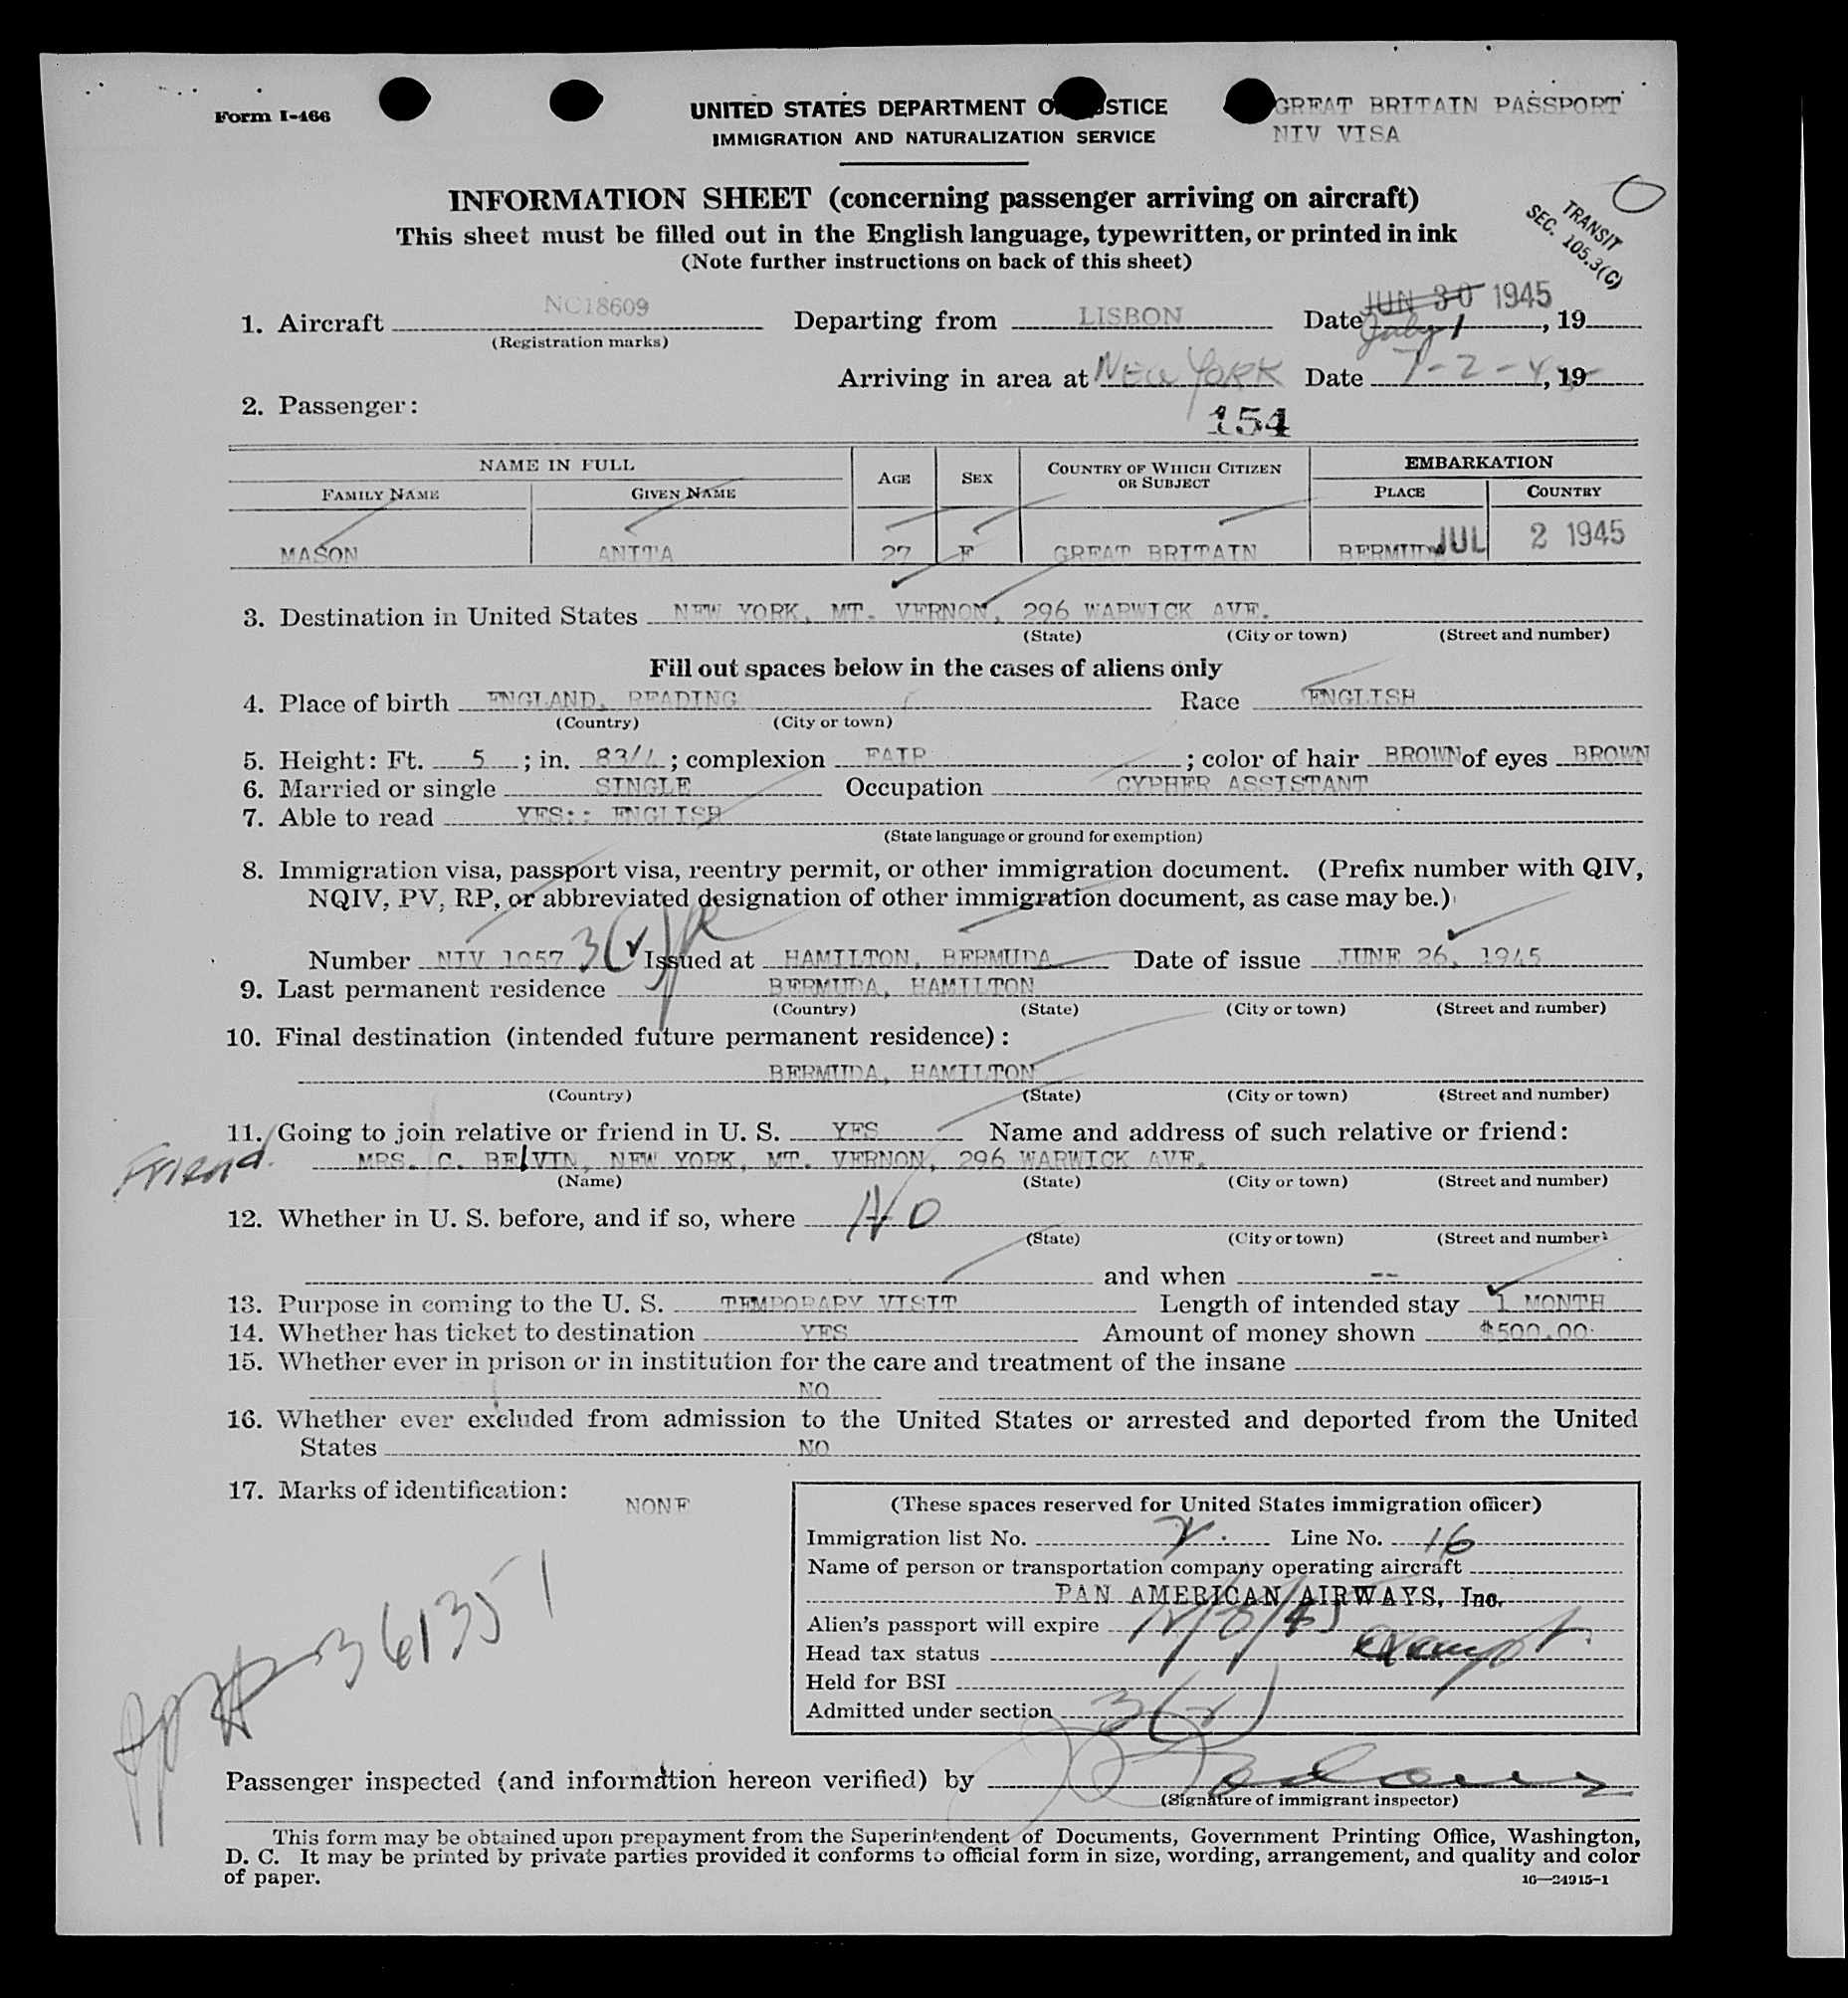 Form I-466
UNITED STATES DEPARTMENT O STICE
IMMIGRATION AND NATURALIZATION SERVICE
GREAT BRITAIN PASSPORT
NIV VISA
INFORMATION SHEET (concerning passenger arriving on aircraft)
This sheet must be filled out in the English language, typewritten, or printed in ink
(Note further instructions on back of this sheet)
TRANSIT
SEC. 105.3(C)
1. Aircraft NC18609 Departing from LISBON Date JUN 30 1945 July 1, 19
(Registration marks)
Arriving in area at NEW YORK Date 7-2-45, 19
2. Passenger:
154
NAME IN FULL AGE SEX COUNTRY OF WHICH CITIZEN OR SUBJECT EMBARKATION
FAMILY NAME GIVEN NAME PLACE COUNTRY
MASON ANITA 27 F GREAT BRITAIN BERMUDA JUL 2 1945
3. Destination in United States NEW YORK, MT. VERNON, 296 WARWICK AVE.
(State) (City or town) (Street and number)
Fill out spaces below in the cases of aliens only
4. Place of birth ENGLAND, READING Race ENGLISH
(Country) (City or town)
5. Height: Ft. 5; in. 83/4; complexion FAIR; color of hair BROWN of eyes BROWN
6. Married or single SINGLE Occupation CYPHER ASSISTANT
7. Able to read YES:: ENGLISH
(State language or ground for exemption)
8. Immigration visa, passport visa, reentry permit, or other immigration document. (Prefix number with QIV,
NQIV, PV, RP, or abbreviated designation of other immigration document, as case may be.)
Number NIV 1057 3(2) Issued at HAMILTON, BERMUDA Date of issue JUNE 26, 1945
9. Last permanent residence BERMUDA, HAMILTON
(Country) (State) (City or town) (Street and number)
10. Final destination (intended future permanent residence):
BERMUDA, HAMILTON
(Country) (State) (City or town) (Street and number)
11. Going to join relative or friend in U. S. YES Name and address of such relative or friend:
Friend. MRS. C. BELVIN, NEW YORK, MT. VERNON, 296 WARWICK AVE.
(Name) (State) (City or town) (Street and number)
12. Whether in U. S. before, and if so, where NO
(State) (City or town) (Street and number)
and when --
13. Purpose in coming to the U. S. TEMPORARY VISIT Length of intended stay 1 MONTH
14. Whether has ticket to destination YES Amount of money shown $500.00
15. Whether ever in prison or in institution for the care and treatment of the insane
NO
16. Whether ever excluded from admission to the United States or arrested and deported from the United
States NO
17. Marks of identification: NONE
(These spaces reserved for United States immigration officer)
Immigration list No. 2. Line No. 16
Name of person or transportation company operating aircraft
PAN AMERICAN AIRWAYS, Inc.
Alien's passport will expire
Head tax status exempt.
Held for BSI
Admitted under section 3(2)
361351
Passenger inspected (and information hereon verified) by
(Signature of immigrant inspector)
This form may be obtained upon prepayment from the Superintendent of Documents, Government Printing Office, Washington,
D. C. It may be printed by private parties provided it conforms to official form in size, wording, arrangement, and quality and color
of paper.
16—24915-1